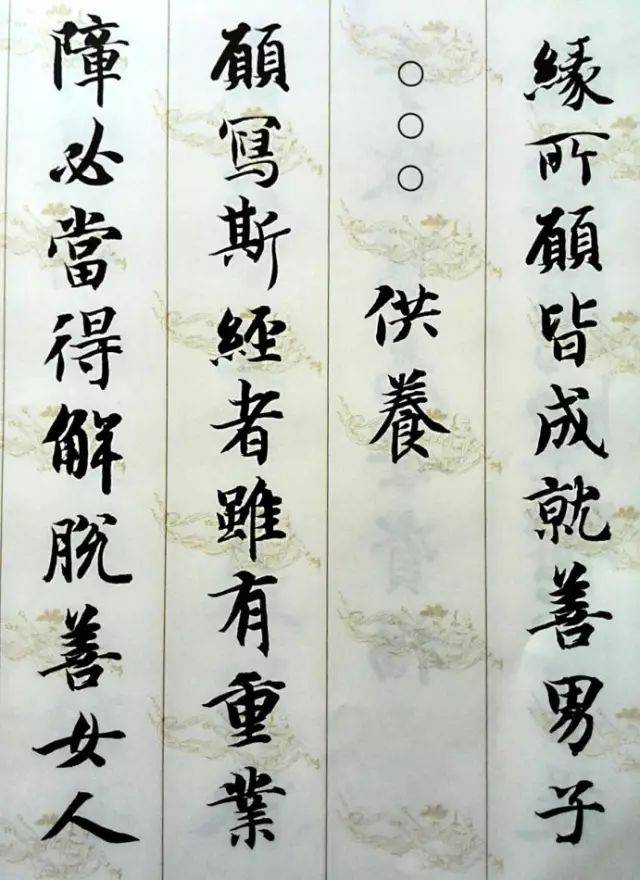 緣所願皆成就善男子
○○○供養
願寫斯經者雖有重業
障必當得解脫善女人